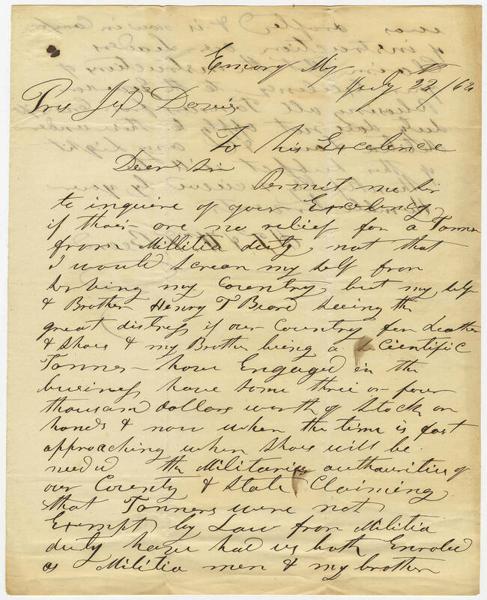 Emory My
July 22nd /62
Pres Jef Davis
To his Excelence
Dear Sir
Permit me Sir
to inquire of your Excelency
if thair are no relief for a Tanner
from Millitia duty, not that
I would Screan my Self from
Serving my Country, but my Self
& Brother Henry T Beard Seeing the
great distress if our Country for Leather
& Shoes & my Brother being a Cientific
Tanner - have Engaged in the
business have some three or four
thousand dollars worth of Stock on
hands & now when the time is fast
approaching when Shoes will be
needed the Militarie authaurities of
our County & State Claiming
that Tanners were not
Exempt by Law from Militia
duty have had us both Enroled
as Militia men & my brother